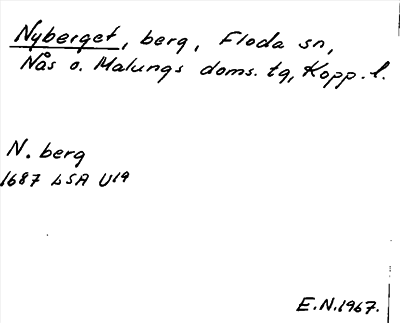 Nyberget, berg, Floda sn,
Nås o. Malungs doms. tg, Kopp. l.
N. berg
1687 LSA U19
E.N. 1967.